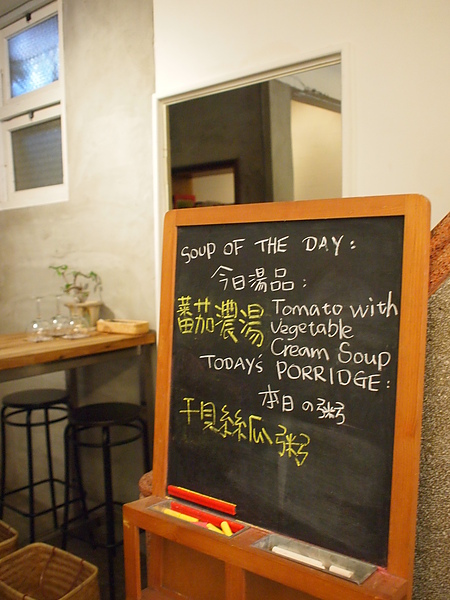 SOUP OF THE DAY:
今日湯品:
蕃茄濃湯 Tomato with
Vegetable
Cream Soup
TODAY'S PORRIDGE:
本日の粥
干貝絲瓜粥